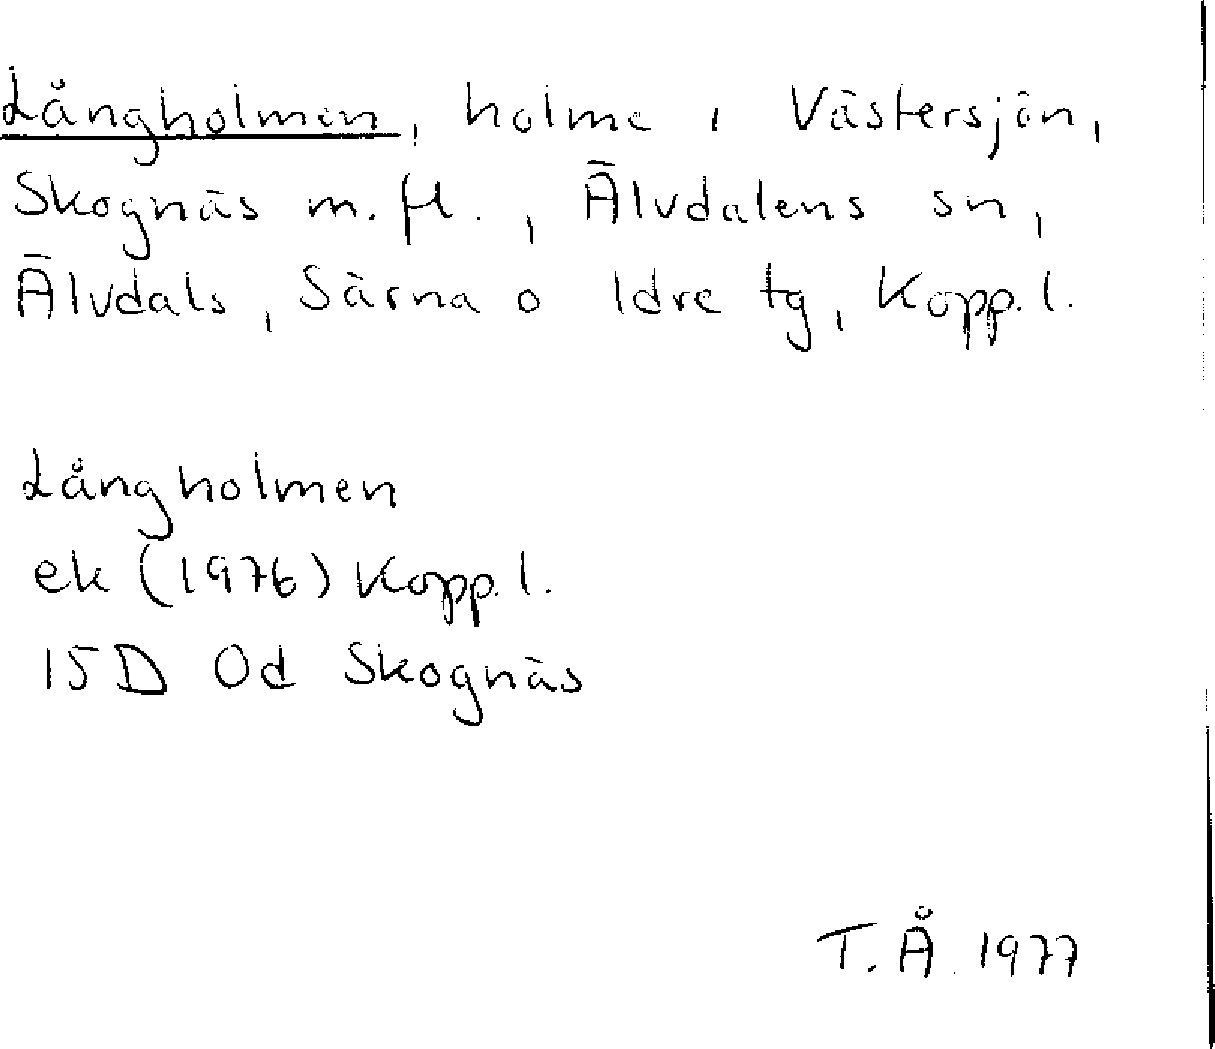 Långholmen, holme i Västersjön,
Skognäs m. fl., Älvdalens sn,
Älvdals, Särna o Idre tg, Kopp. l.
Långholmen
ek (1976) Kopp. l.
15D 0d Skognäs
T. Å. 1977